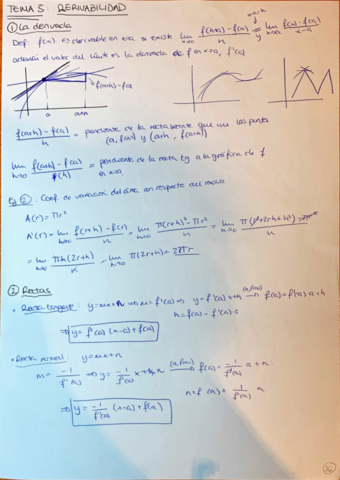 TEMA 5: DERIVABILIDAD
① La derivada
Def: f(x) es derivable en x=a si existe lim h→0 (f(a+h)-f(a))/h = lim x→a (f(x)-f(a))/(x-a)
x=a+h
y
el valor del límite es la derivada de f en x=a, f'(a)
f(a+h)-f(a)
(f(a+h)-f(a))/h = pendiente de la recta que une los puntos
(a, f(a)) y (a+h, f(a+h))
lim h→0 (f(a+h)-f(a))/h = pendiente de la recta tg a la gráfica de f
en x=a
Eg ②: Coef. de variación del área con respecto del radio
A(r)= πr²
A'(r)= lim h→0 (f(r+h)-f(r))/h = lim h→0 (π(r+h)²-πr²)/h = lim h→0 (π(r²+2rh+h²)-πr²)/h
= lim h→0 πh(2r+h)/h = lim h→0 π(2r+h)= 2πr
② Rectas
• Recta tangente: y=mx+n ⇒ m=f'(a) ⇒ y=f'(a)x+n (a,f(a))→ f(a)=f'(a)a+n
n=f(a)-f'(a)·a
⇒ y=f'(a)(x-a)+f(a)
• Recta normal: y=mx+n
m= -1/f'(a) ⇒ y= -1/f'(a) x+n (a,f(a))→ f(a)= -1/f'(a) a+n
n=f(a)+ 1/f'(a) a
⇒ y= -1/f'(a) (x-a)+f(a)